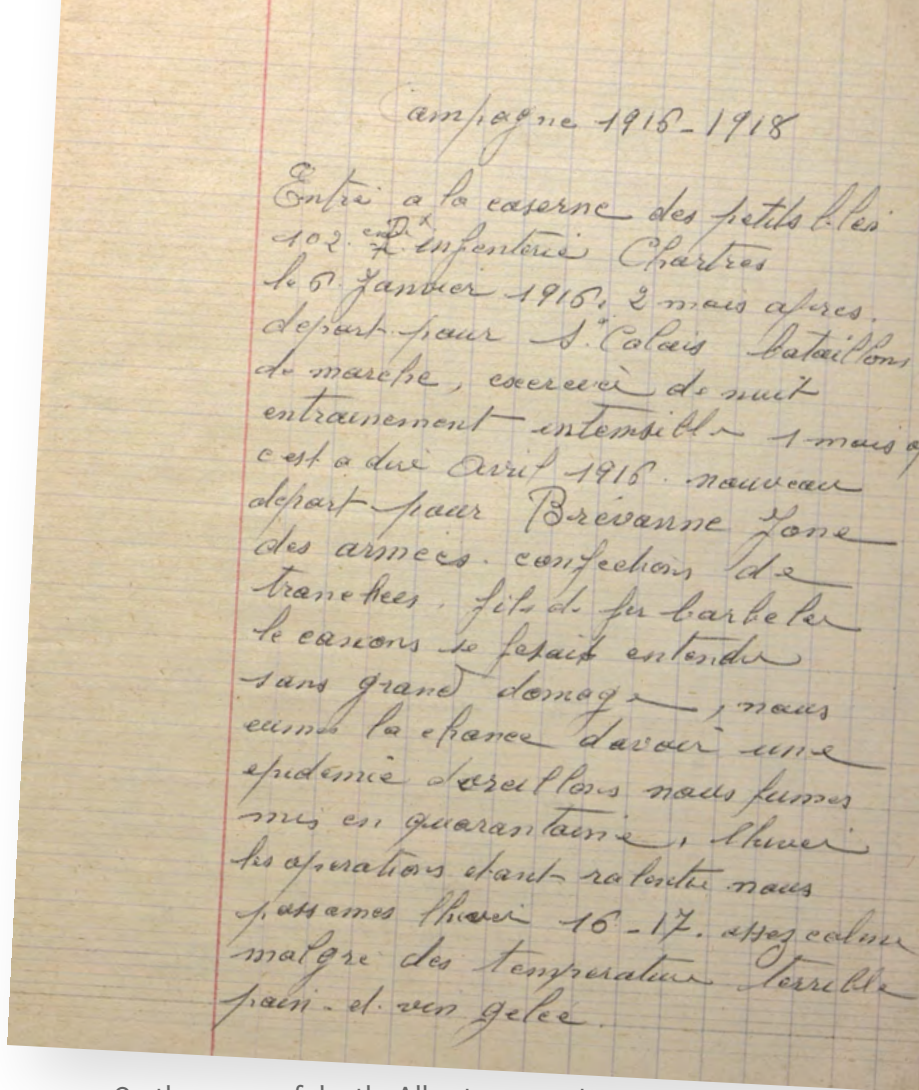 Campagne 1916-1918
Entré a la caserne des petits blés
102. infenterie Chartres
le 6 Janvier 1916. 2 mois apres.
depart pour St Calais bataillons
de marche, exercice de nuit
entrainement intensible 1 mois
c est a dire Avril 1916. nouveau
depart pour Brévanne Zone
des armées. confections de
tranchees. fils de fer barbeler
le canons se fesait entendre
sans grand domage, nous
eumes la chance davoir une
epidemie doreillons nous fumes
mis en quarantaine, lhiver
les operations etant ralentie nous
passames lhiver 16-17. assez calme
malgré des temperature terrible
pain et vin gelee.